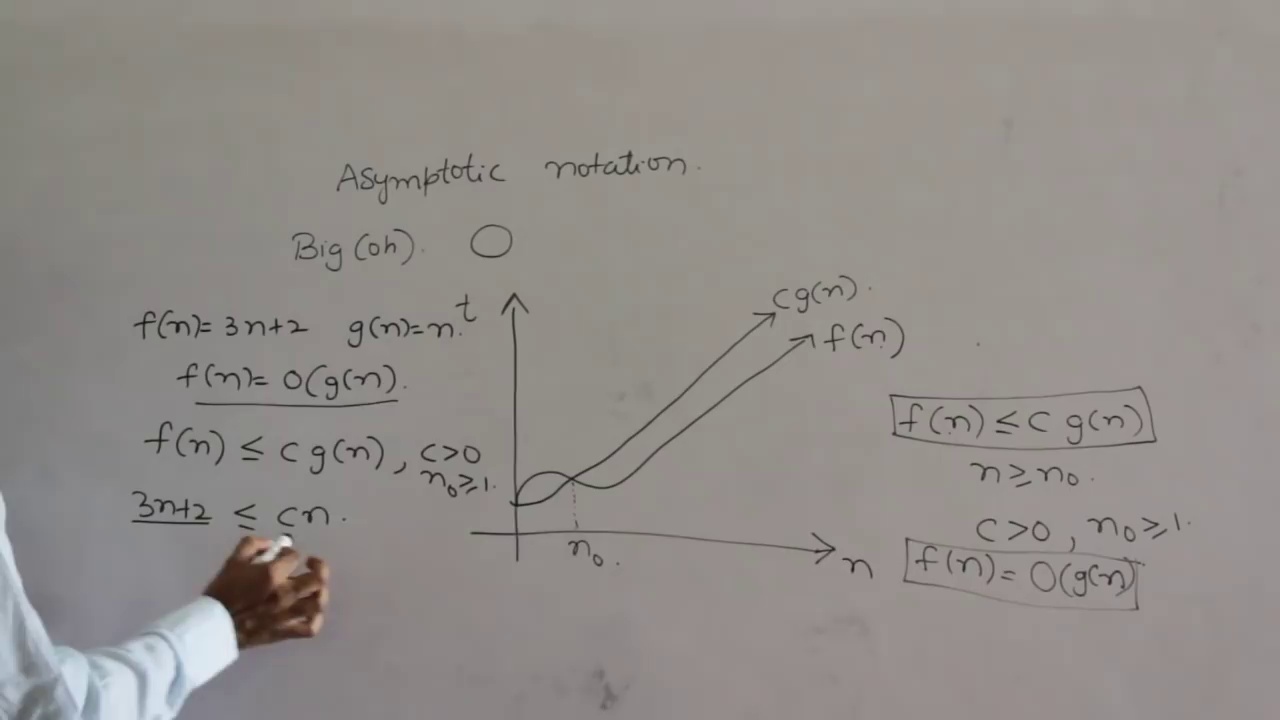 Asymptotic notation.
Big(oh). O
f(n)= 3n+2 g(n)=n.
f(n)= O(g(n).
f(n) ≤ c g(n), c>0
n₀≥1.
3n+2 ≤ cn.
t
cg(n).
f(n)
n₀.
n
f(n) ≤ c g(n)
n≥n₀.
c>0, n₀≥1.
f(n)= O(g(n)